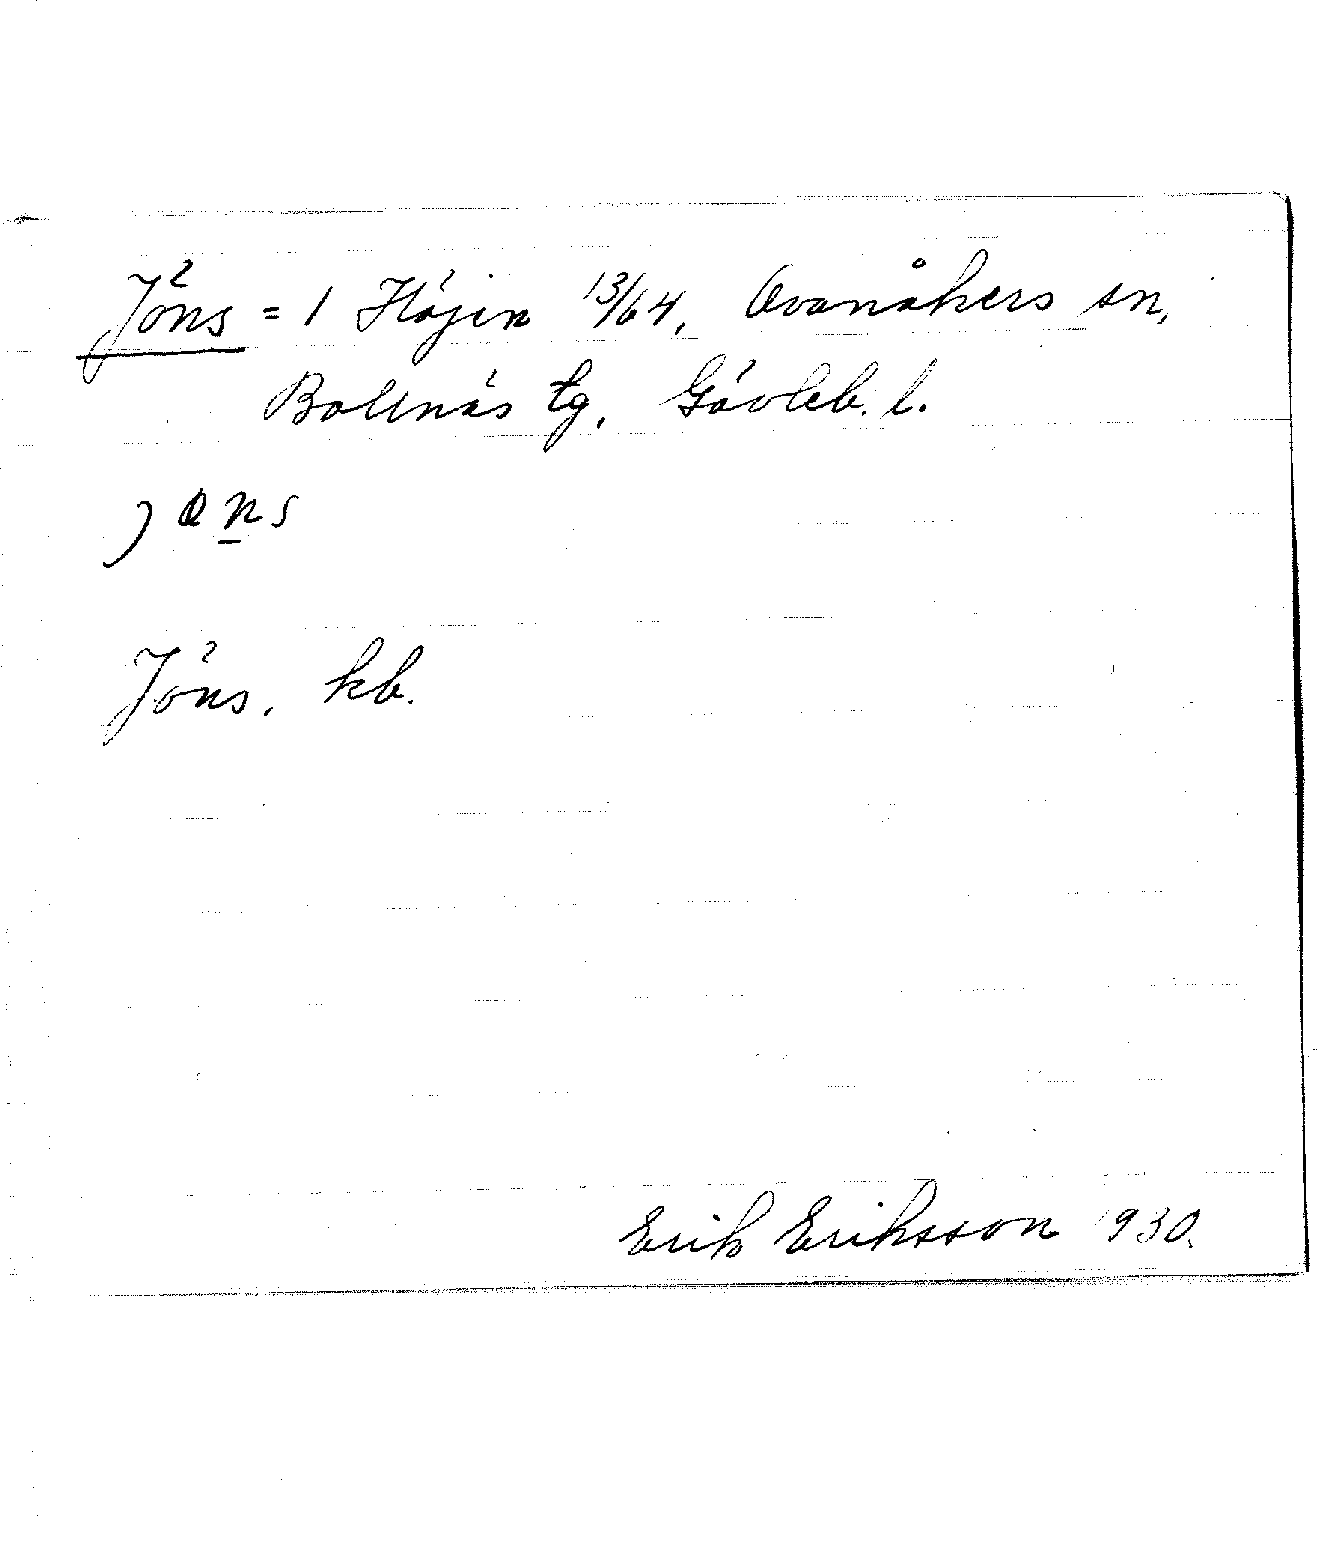 Jöns = 1 Höjen 13/64, Ovanåkers sn,
Bollnäs tg, Gävleb. l.
jöns
Jöns, kb.
Erik Eriksson 1930.